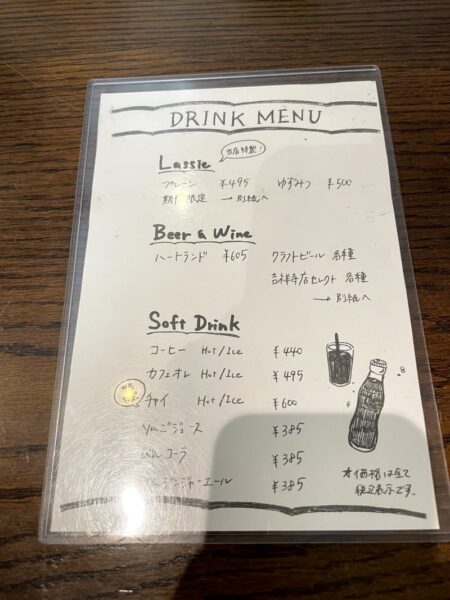 DRINK MENU
当店特製!
Lassie
プレーン ¥495 ゆずみつ ¥500
期間限定 → 別紙へ
Beer & Wine
ハートランド ¥605 クラフトビール 各種
吉祥寺店セレクト 各種
→ 別紙へ
Soft Drink
コーヒー Hot/Ice ¥440
カフェオレ Hot/Ice ¥495
チャイ Hot/Ice ¥600
りんごジュース ¥385
びんコーラ ¥385
ジンジャーエール ¥385
*価格は全て
税込表示です。